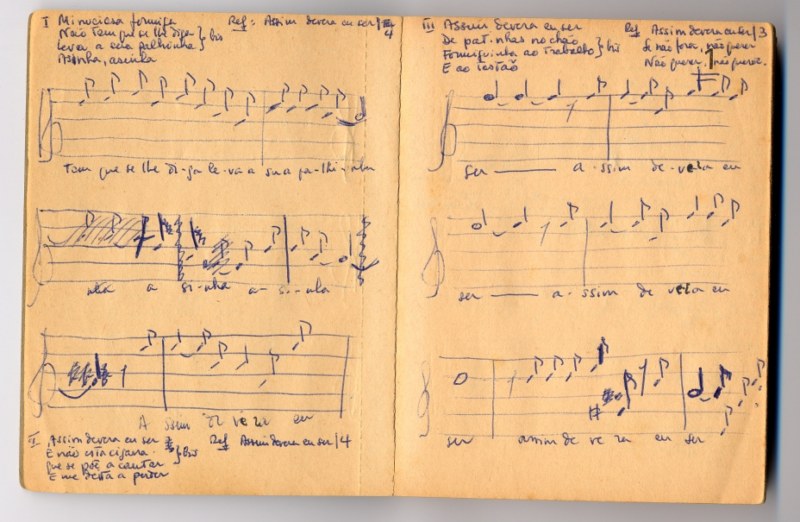 I Minuciosa formiga
Não tem que se lhe diga } bis
Leva a sua palhinha
Asinha, asinha
Ref: Assim devera eu ser / 4
Tem que se lhe di-ga le-va a sua pa-lhi-nha
nha a si-nha a-si-nha
A ssim de vera eu
II Assim devera eu ser
E não esta cigarra } bis
Que se põe a cantar
E me deita a perder
Ref Assim devera eu ser / 4
III Assim devera eu ser
De patinhas no chão
Formiguinha ao trabalho } bis
E ao tostão
Ref Assim devera eu ser / 3
Se não fora, não querer
Não querer, não querer.
ser — a-ssim de-vera eu
ser — a-ssim de vera eu
ser assim de ve ra eu ser